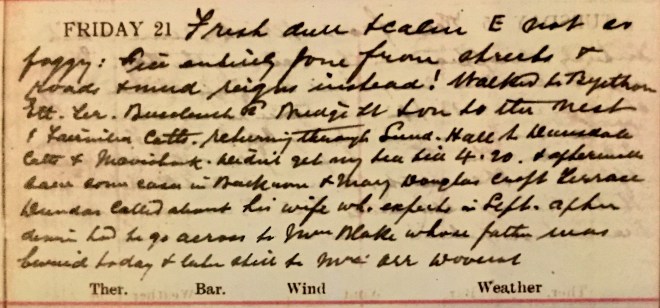 FRIDAY 21 Fresh dull & calm E not so
foggy: Ice entirely gone from streets &
roads & mud reigns instead! Walked to
Ett. Ter. Buccleuch & Bridge St on to the Nest
& Cotts. returning through Sund. Hall to
Cotts & . Didn't get my tea till 4.20. & afterwards
saw some cases in Backrow & Mary Douglas Croft Terrace
Dundas called about his wife who expects in Sept. After
had to go across to Mrs Blake whose father was
buried today & later still to Mrs
Ther. Bar. Wind Weather